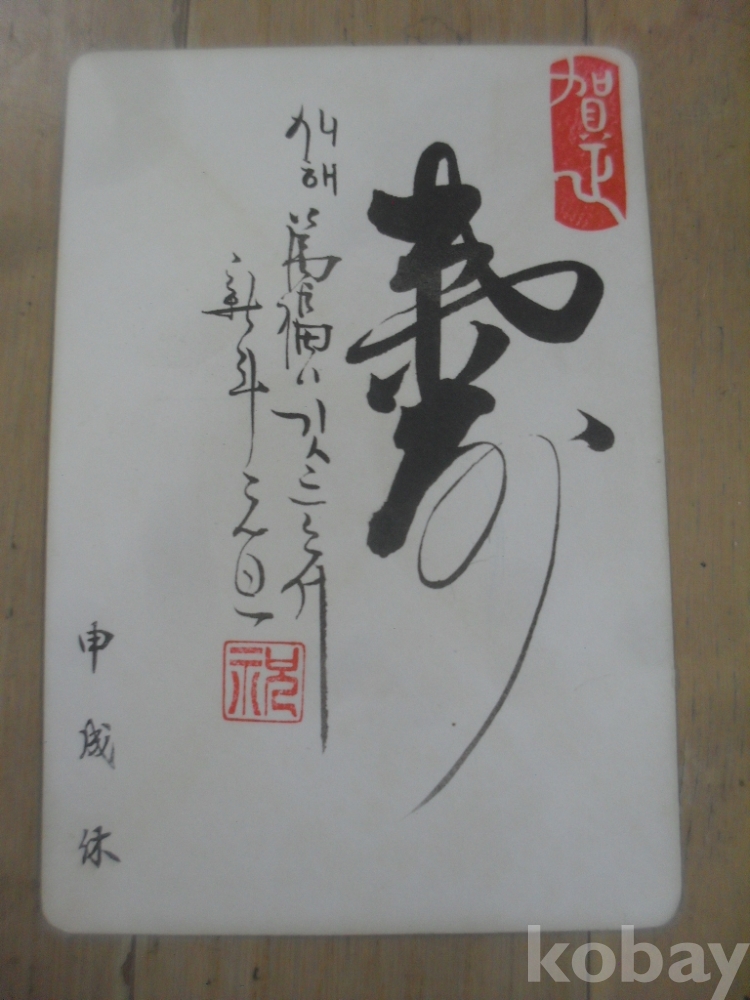 賀正
壽
새해 萬福이 깃드소서
新年元旦
祝
申成休
kobay